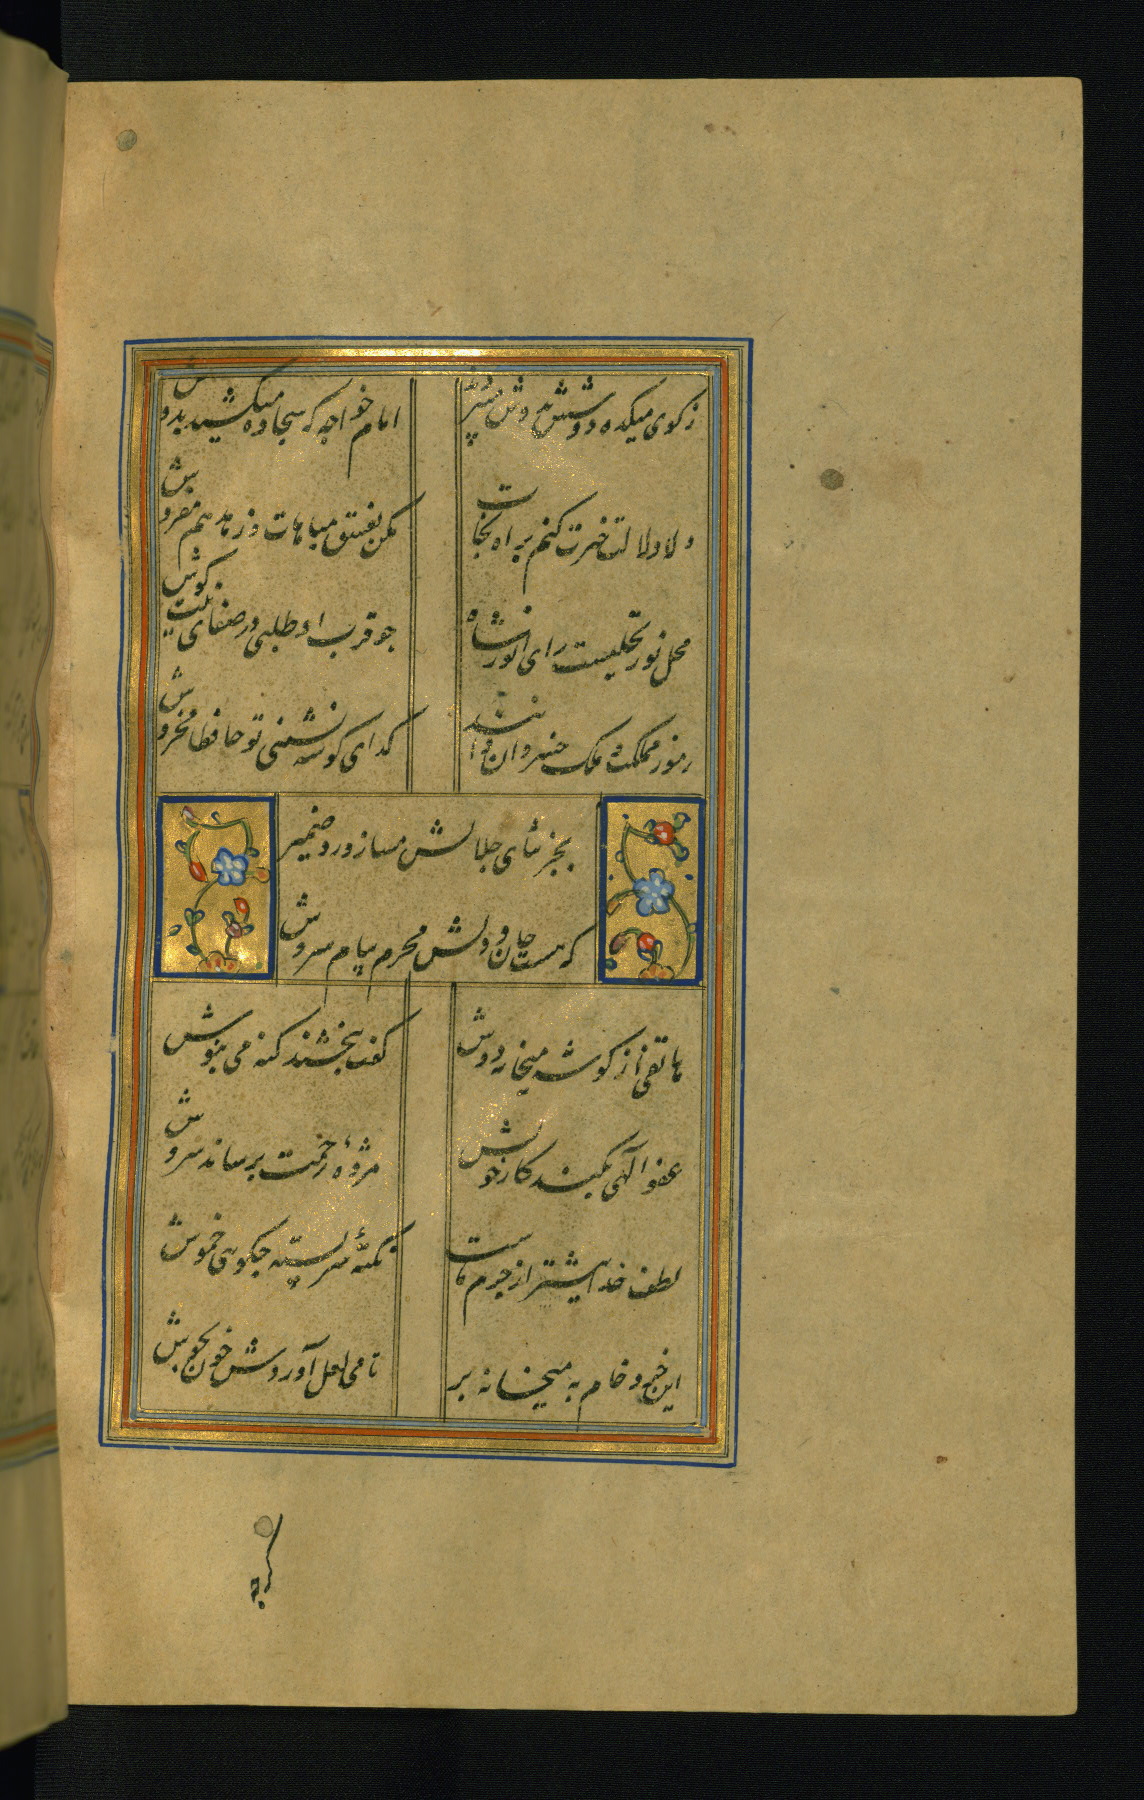 ز کوی میکده دوشش بدوش می‌بردند
امام خواجه که سجاده میکشید بدوش
دلا دلالت خیرت کنم براه نجات
مکن بفسق مباهات و زهد هم مفروش
محل نور تجلیست رای انور شاه
جو قرب او طلبی در صفای نیت کوش
رموز مملکت و ملک خسروان دانند
کدای کوشه نشینی تو حافظا مخروش
بجز ثنای جلالش مساز ورد ضمیر
که هست جان و دلش محرم پیام سروش
هاتفی از کوشه میخانه دوش
کفت ببخشند کنه می بنوش
عفو الهی بکند کار خویش
مژدهٔ رحمت برساند سروش
لطف خدا بیشتر از جرم ماست
نکتهٔ سر بسته چکوهی خموش
این خرد خام به میخانه بر
تا می لعل آوردش خون بجوش
کرچه